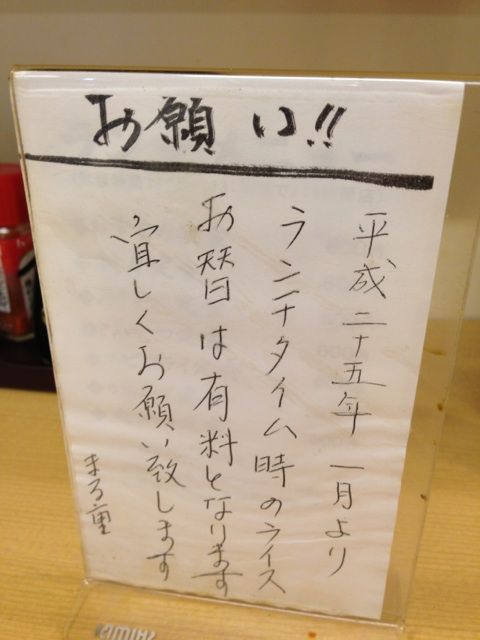 お願い!!
平成二十五年一月より
ランチタイム時のライス
お替は有料となります
宜しくお願い致します
まる重